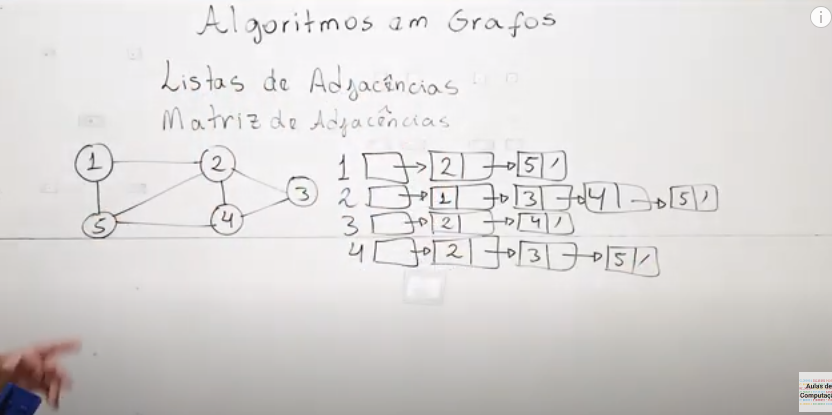 Algoritmos em Grafos
Listas de Adjacências
Matriz de Adjacências
1 2 3 4 5
1 2 5
2 1 3 4 5
3 2 4
4 2 3 5
i
Aulas de
Computaç